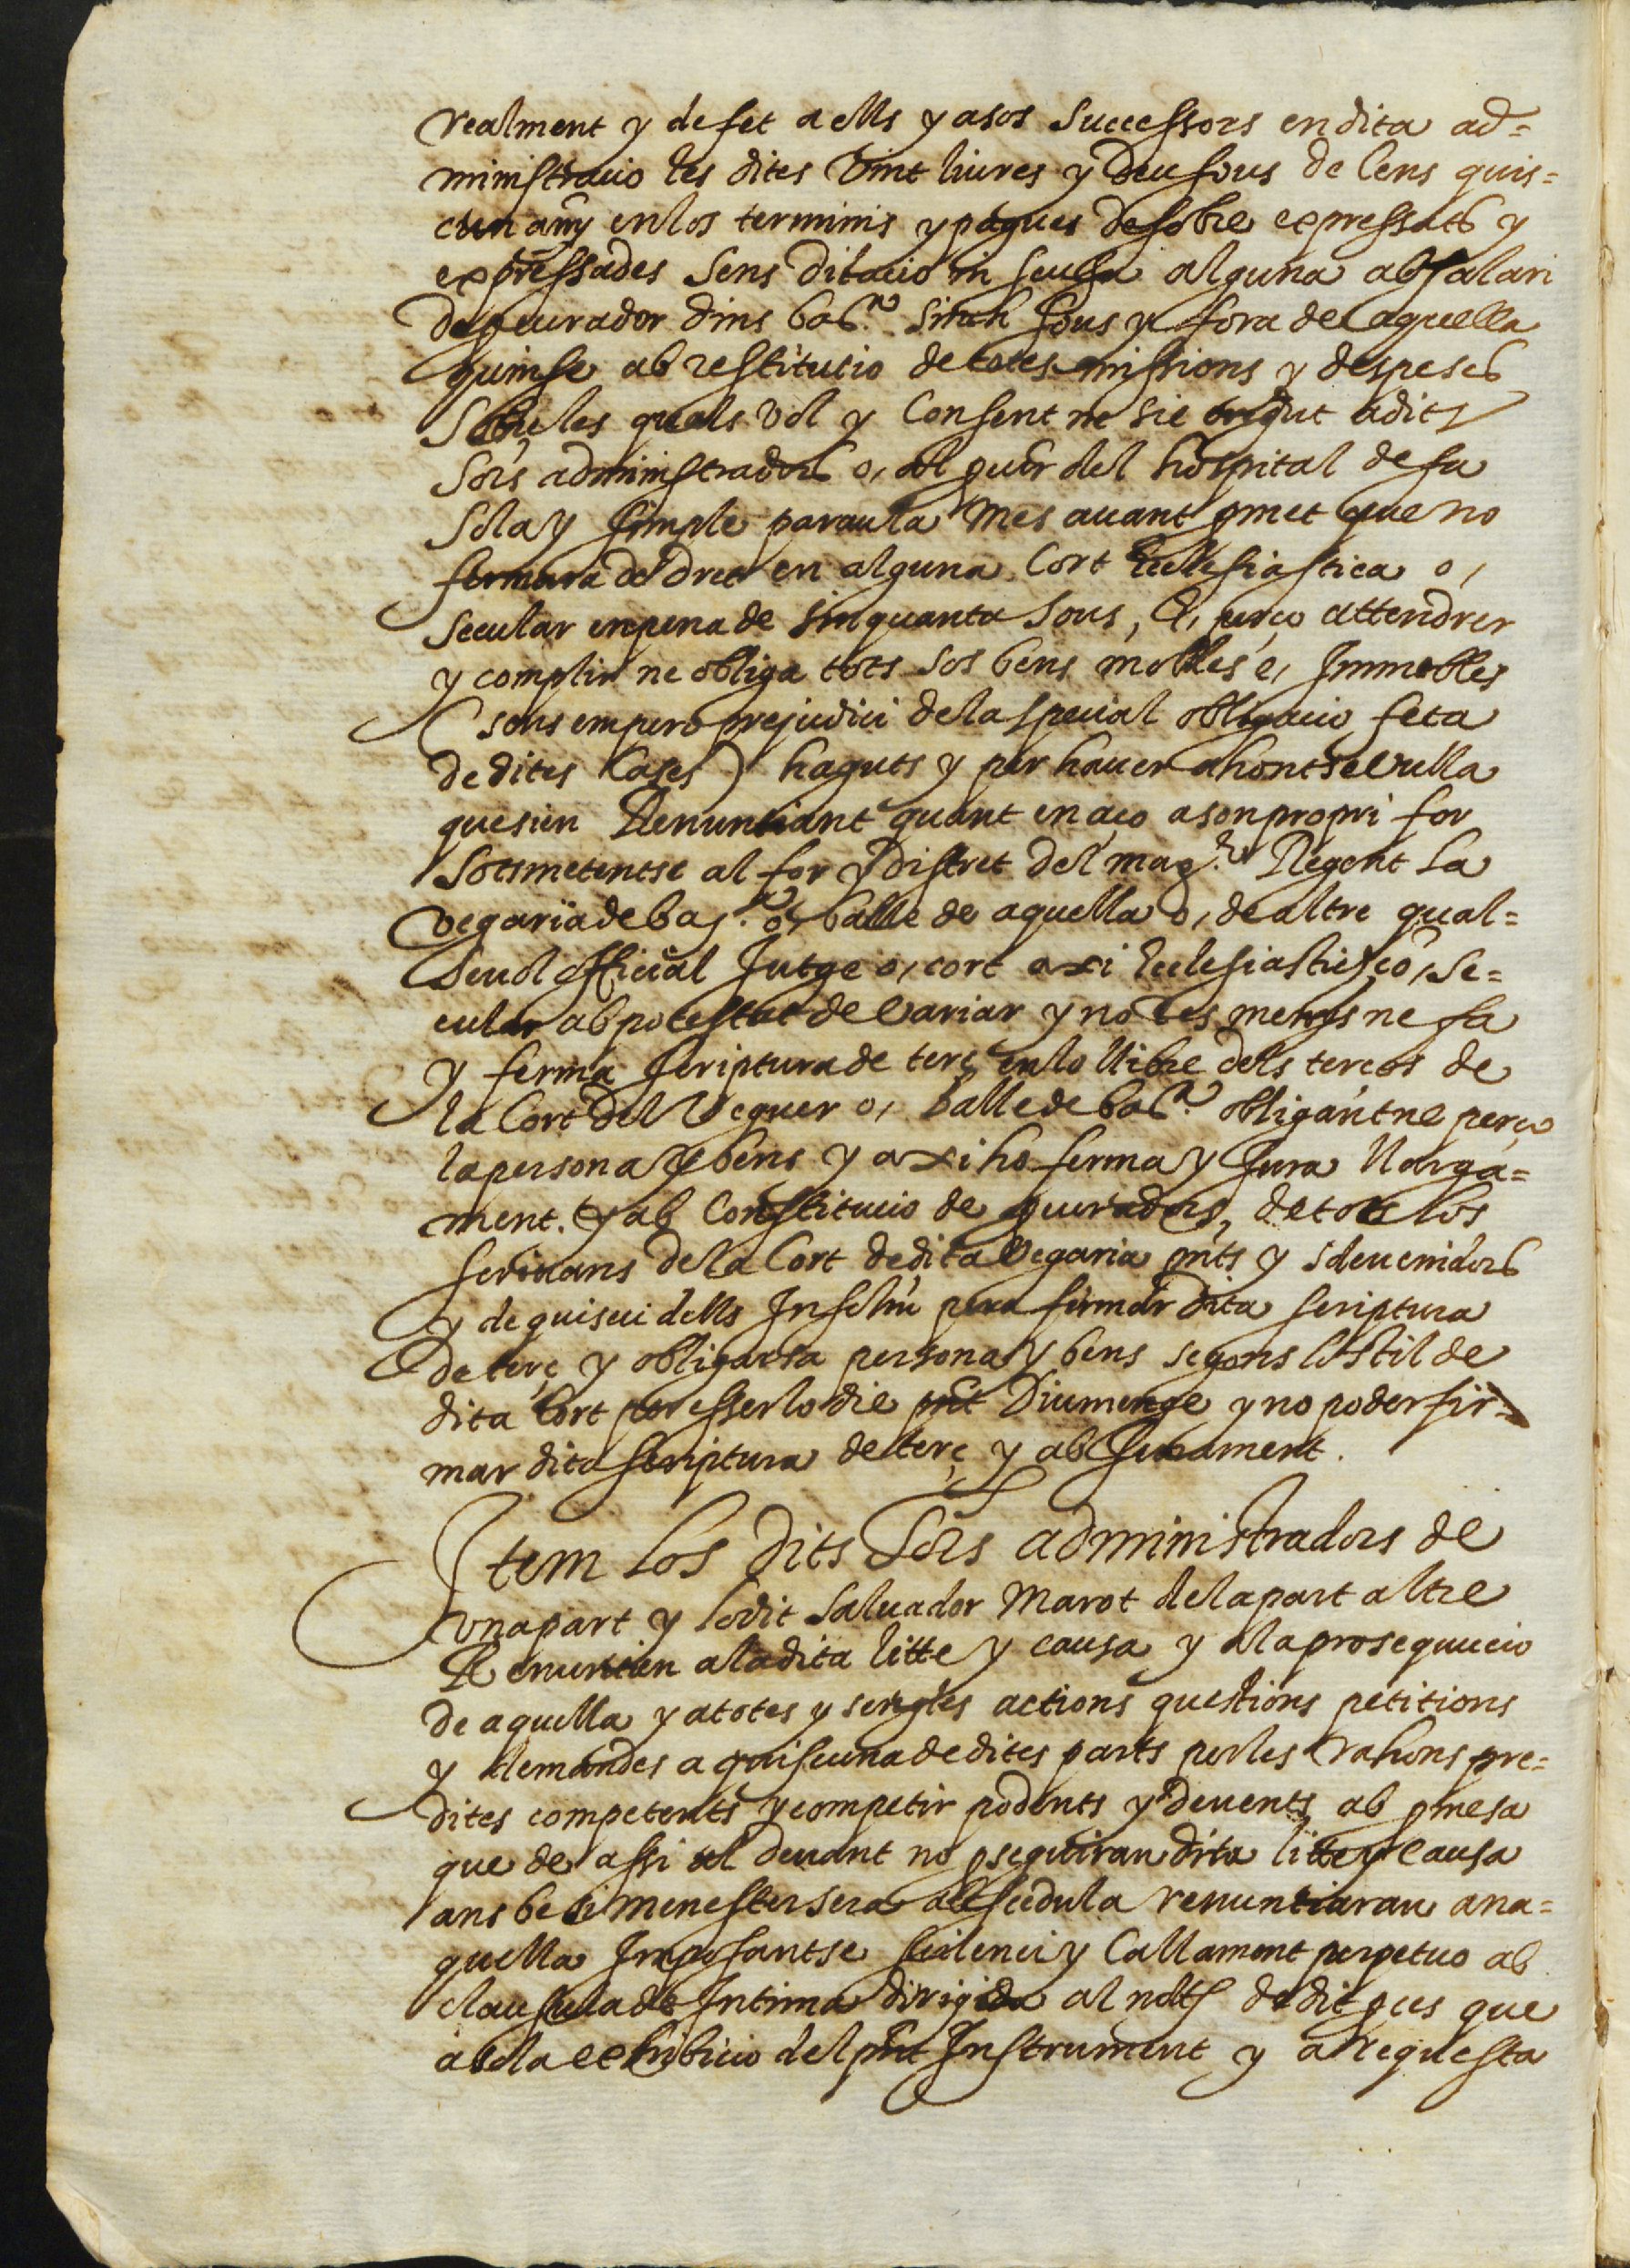 realment y de fet a ells y a sos successors en dita ad=
ministratio les dites vint liures y deu sous de cens quis=
cun any en los terminis y pagues desobre expressats y
expressades sens dilacio ni scusa alguna ab salari
de pcurador dins barᵃ. sinch sous y fora de aquella
quinse ab restitutio de totes missions y despeses
sobre les quals vol y consent ne sie cregut a dits
sors administradors o, al pcur del hospital de sa
sola y simple paraula Mes auant pmet que no
fermara de dret en alguna Cort Ecclesiastica o,
secular en pena de sinquanta sous, E, perço attendrer
y complir ne obliga tots sos bens mobles e, Immobles
(sens empero prejudici de la special obligacio feta
de dites Cases) haguts y per hauer ahont se vulla
que sien Renuntiant quant en aço a son propri for
sotsmetentse al for y distret del magᶜʰ. Regent la
vegaria de barᵃ. o, balle de aquella o, de altre qual=
seuol official Jutge o, cort axi Ecclesiastich, o, se=
cular ab potestat de variar y no res menys ne fa
y ferma scriptura de terç en lo llibre dels terços de
la Cort del Veguer o, balle de barᵃ. obligantne perço
la persona y bens y axi ho ferma y Jura llarga=
ment. Y ab Constitucio de pcuradors, de tots los
scriuans de la Cort de dita vegaria pnts y sdeuenidors
y de quiscu dells Insolm pera firmar dita scriptura
de terç y obligarsa persona y bens segons lo stil de
dita Cort per esser lo die pnt Diumenge y no poder fir=
mar dita scriptura de terç y ab Jurament.
Item los dits sors administradors de
vna part y lo dit Saluador Marot de la part altre
Renuntien a la dita litte y causa y a la prosequucio
de aquella y a totes y sengles actions questions petitions
y demandes a quiscuna de dites parts per les rahons pre=
dites competents y competir podents y deuents ab pmesa
que de assi al deuant no pseguiran dita litte y causa
ans be si menester sera ab scedula renuntiaran ana=
quella Imposantse scilenci y callament perpetuo ab
clausula de Intima dirigida al notᶠ de dit pces que
a sola exhibicio del pnt Instrument y a requesta